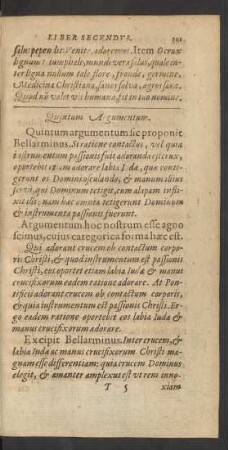 LIBER SECUNDUS.
salus pependit. Venite adoremus. Item O crux
lignum triumphale, mundi vera salus, quale in-
ter ligna nullum tale flore, fronde, germine.
Medicina Christiana, sanos salva, ægros sana.
Quod non valet vis humana, fit in tuo nomine.
Quintum Argumentum.
Quintum argumentum sic proponit
Bellarminus. Si ratione contactus, vel quia
instrumentum passionis fuit adoranda est crux,
oporteret etiam adorare labia Judæ, qua conti-
gerunt os Domini osculando, & manum illius
servi, qui Dominum tetigit, cum alapam infli-
xit illi; nam hæc omnia tetigerunt Dominum
& instrumenta passionis fuerunt.
Argumentum hoc nostrum esse agno-
scimus, cujus categorica forma hæc est.
Qui adorant crucem ob contactum corpo-
ris Christi, & quod instrumentum est passionis
Christi, eos oportet etiam labia Judæ & manus
crucifixorum eadem ratione adorare. At Pon-
tificii adorant crucem ob contactum corporis,
& quia instrumentum est passionis Christi. Er-
go eadem ratione oportebit eos labia Judæ &
manus crucifixorum adorare.
Excipit Bellarminus. Inter crucem, &
labia Judæ ac manus crucifixorum Christi ma-
gnam esse differentiam: quia crucem Dominus
elegit, & amanter amplexus est ut rem inno-
T 5 xiam